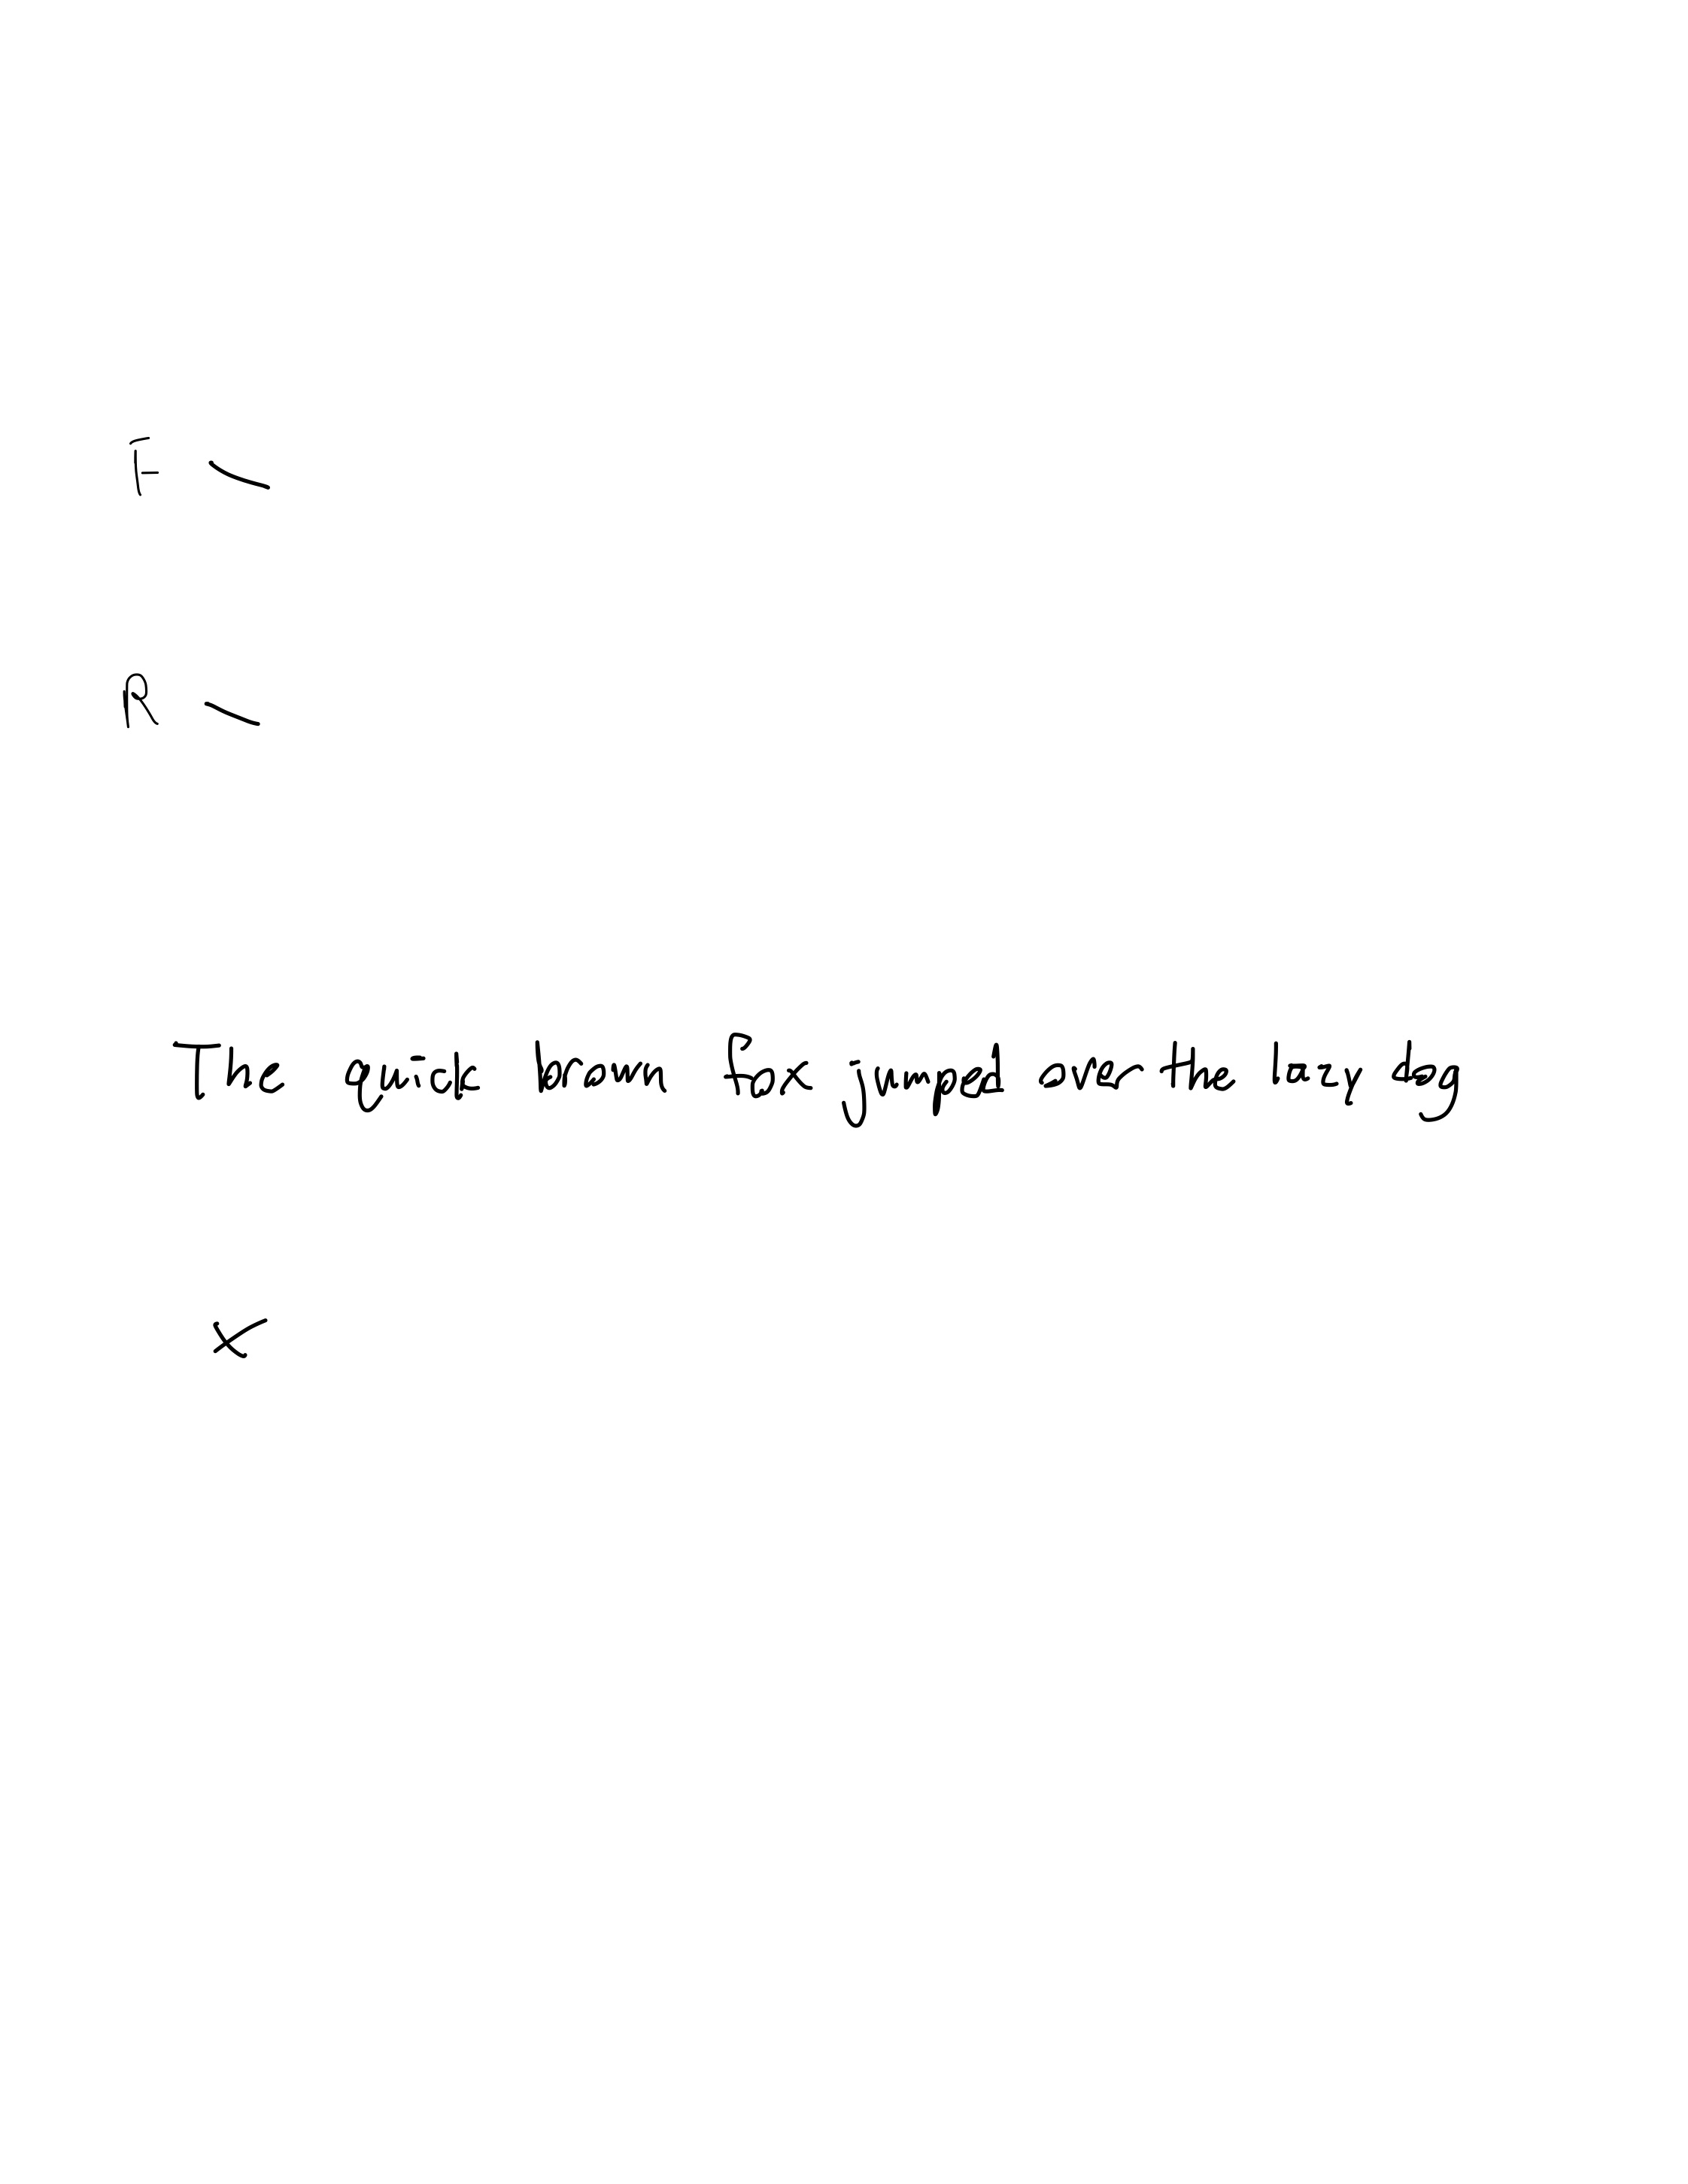 F -
R -
The quick brown fox jumped over the lazy dog
x